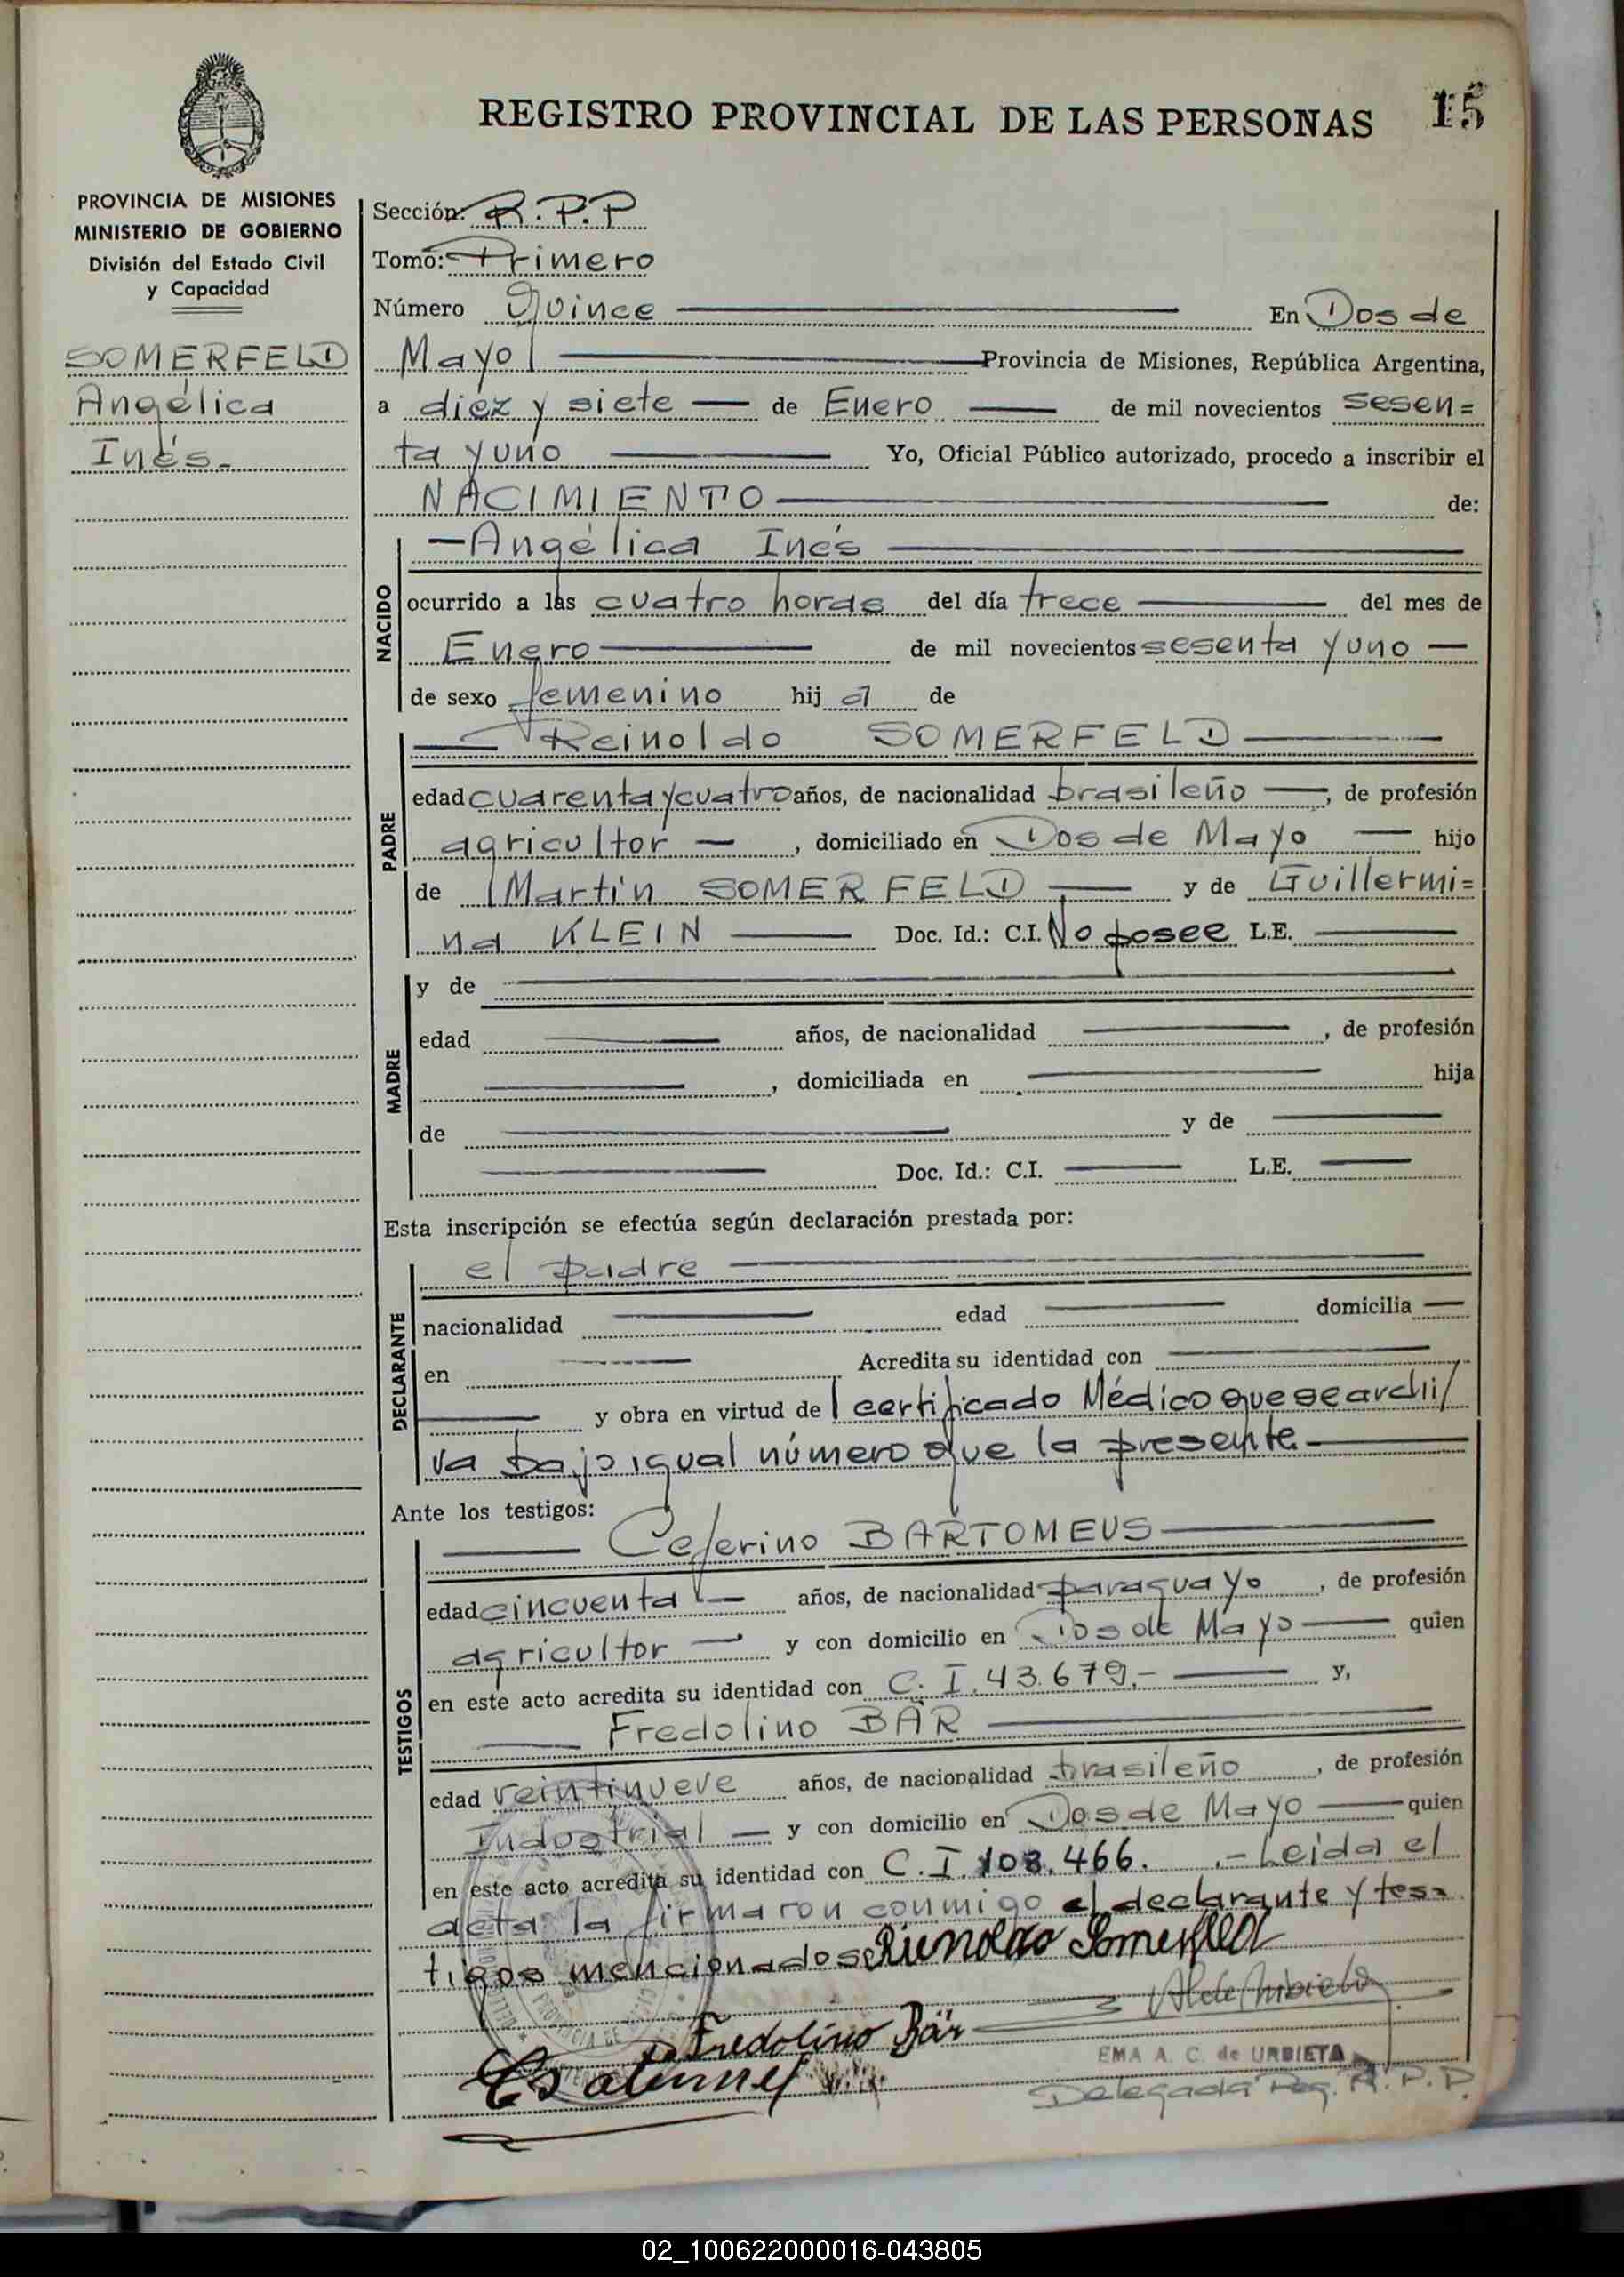 REGISTRO PROVINCIAL DE LAS PERSONAS 15
PROVINCIA DE MISIONES
MINISTERIO DE GOBIERNO
División del Estado Civil
y Capacidad
SOMERFELD
Angélica
Inés.-
Sección: R.P.P
Tomo: Primero
Número Quince En Dos de
Mayo Provincia de Misiones, República Argentina,
a diéz y siete de Enero de mil novecientos sesen=
ta y uno Yo, Oficial Público autorizado, procedo a inscribir el
NACIMIENTO de:
NACIDO
Angélica Inés
ocurrido a las cuatro horas del día trece del mes de
Enero de mil novecientos sesenta y uno
de sexo femenino hij a de
PADRE
Reinoldo SOMERFELD
edad cuarenta y cuatro años, de nacionalidad brasileño, de profesión
agricultor, domiciliado en Dos de Mayo hijo
de Martín SOMERFELD y de Guillermi=
na KLEIN Doc. Id.: C.I. No posee L.E.
MADRE
y de
edad años, de nacionalidad , de profesión
, domiciliada en hija
de y de
Doc. Id.: C.I. L.E.
Esta inscripción se efectúa según declaración prestada por:
DECLARANTE
el padre
nacionalidad edad domicilia
en Acredita su identidad con
y obra en virtud del certificado Médico que se archi/
va bajo igual número que la presente.
Ante los testigos:
TESTIGOS
Ceferino BARTOMEUS
edad cincuenta años, de nacionalidad paraguayo, de profesión
agricultor y con domicilio en Dos de Mayo quien
en este acto acredita su identidad con C. I. 43.679.- y,
Fredolino BÄR
edad veintinueve años, de nacionalidad brasileño, de profesión
Industrial y con domicilio en Dos de Mayo quien
en este acto acredita su identidad con C.I. 108.466. .- Leída el
acta la firmaron conmigo el declarante y tes=
tigos mencionados Rienoldo Somerfeld
Fredolino Bär
EMA A. C. de URBIETA
Delegada Reg. R.P.P.
02_100622000016-043805